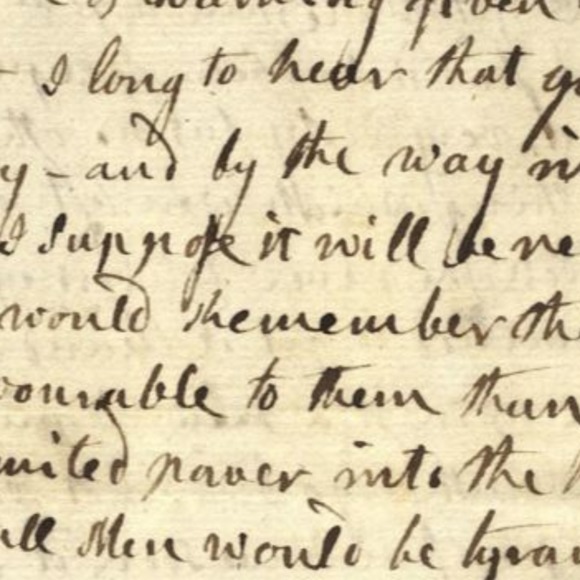 I long to hear that
y - and by the way in
I suppose it will be ne
would Remember the
vourable to them than
mited power into the
all Men would be tyran